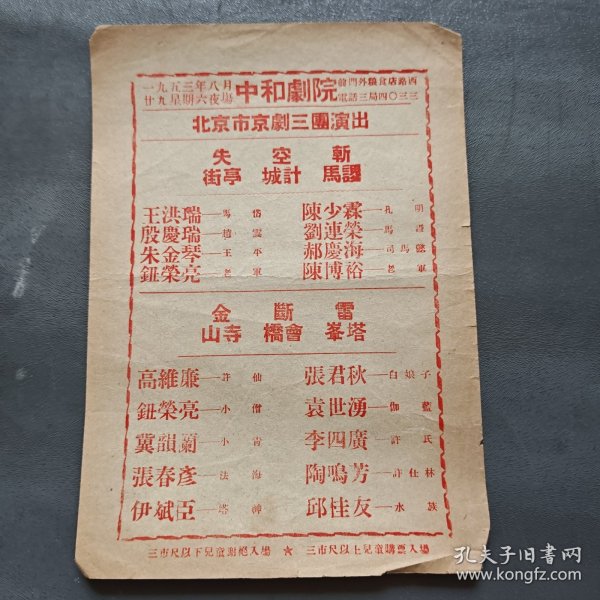 一九五三年八月
廿九星期六夜場
中和劇院
前門外粮食店路西
電話三局四〇三三
北京市京劇三團演出
失 空 斬
街亭 城計 馬謖
王洪瑞—馬岱 陳少霖—孔明
殷慶瑞—趙雲 劉連榮—馬謖
朱金琴—王平 郝慶海—司馬懿
鈕榮亮—老軍 陳博裕—老軍
金 斷 雷
山寺 橋會 峯塔
高維廉—許仙 張君秋—白娘子
鈕榮亮—小僧 袁世湧—伽藍
冀韻蘭—小青 李四廣—許氏
張春彥—法海 陶鳴芳—許仕林
伊斌臣—塔神 邱桂友—水族
三市尺以下兒童謝絕入場 ☆ 三市尺以上兒童購票入場
孔夫子旧书网
www.kongfz.com